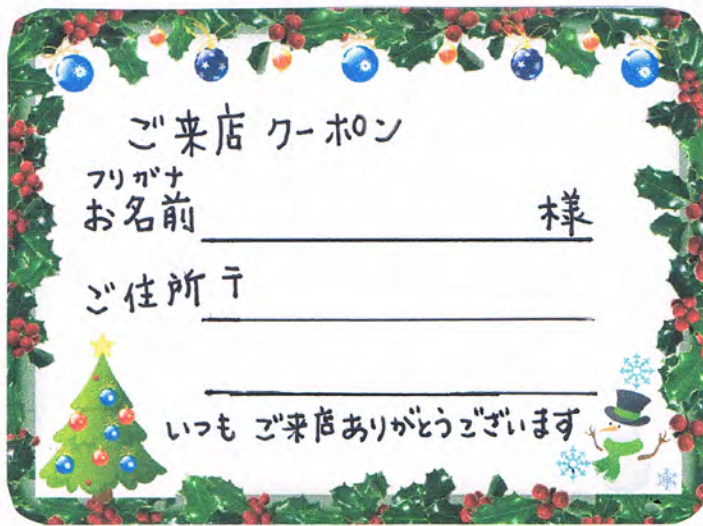 ご来店 クーポン
フリガナ
お名前 様
ご住所 〒
いつも ご来店ありがとうございます